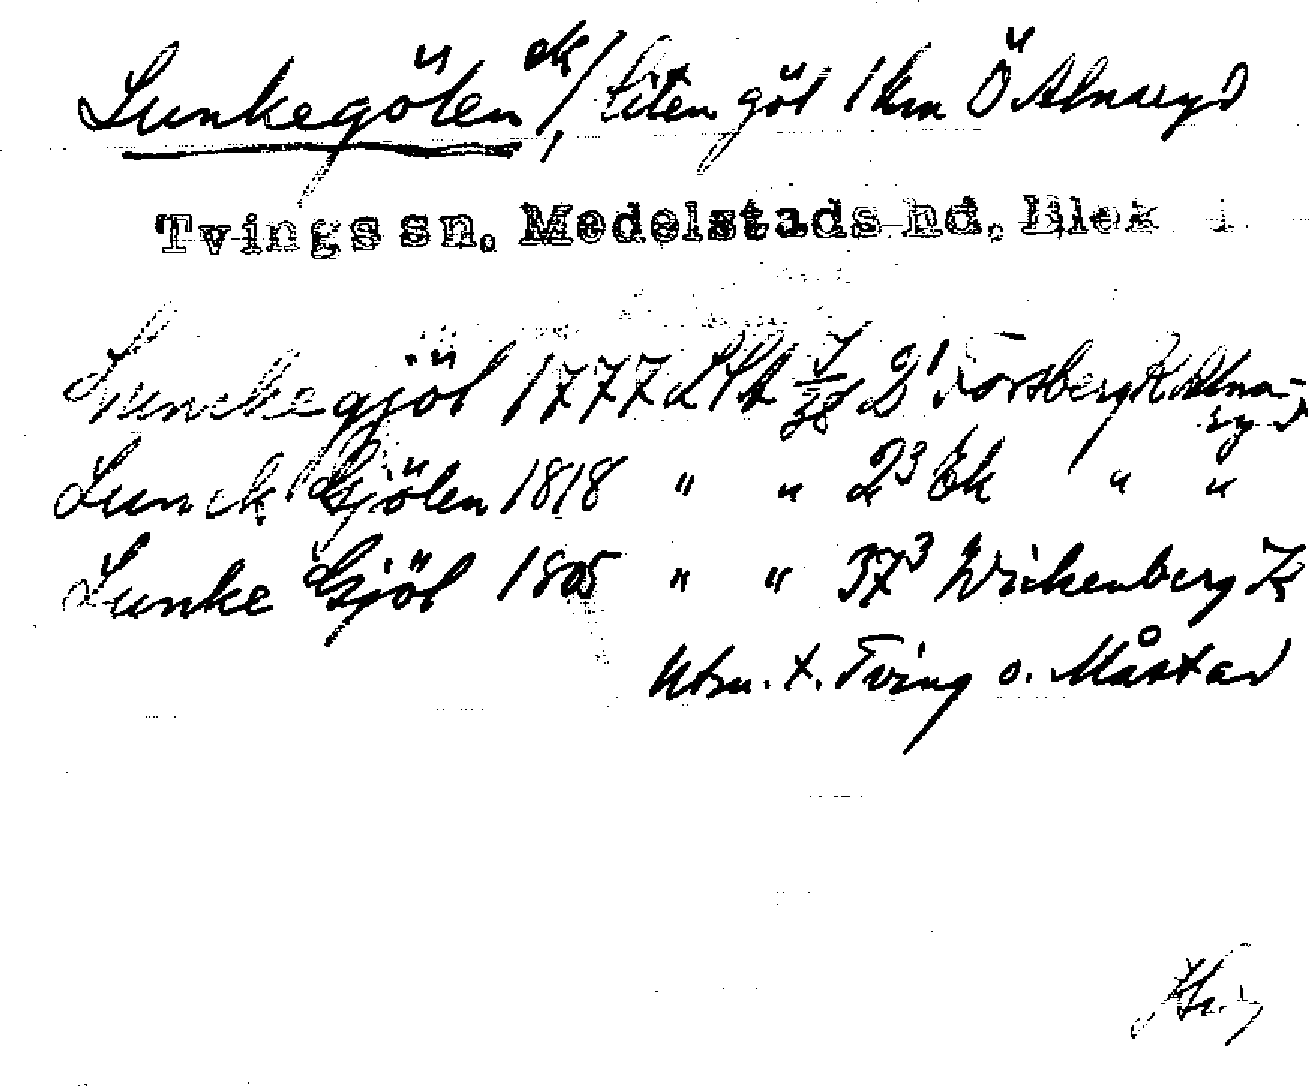 Lunkegölen ek/, liten göl 1 km Ö Alnaryd
Tvings sn. Medelstads hd. Blek
Lunckegjöl 1777 LSA 2¹ Forsberg K Alna-
ryd
Lunck Gjölen 1818 " " 2³ Ek " "
Lunke Gjöl 1805 " " 37³ Wickenberg K
Utm. t. Tving o. Måstad